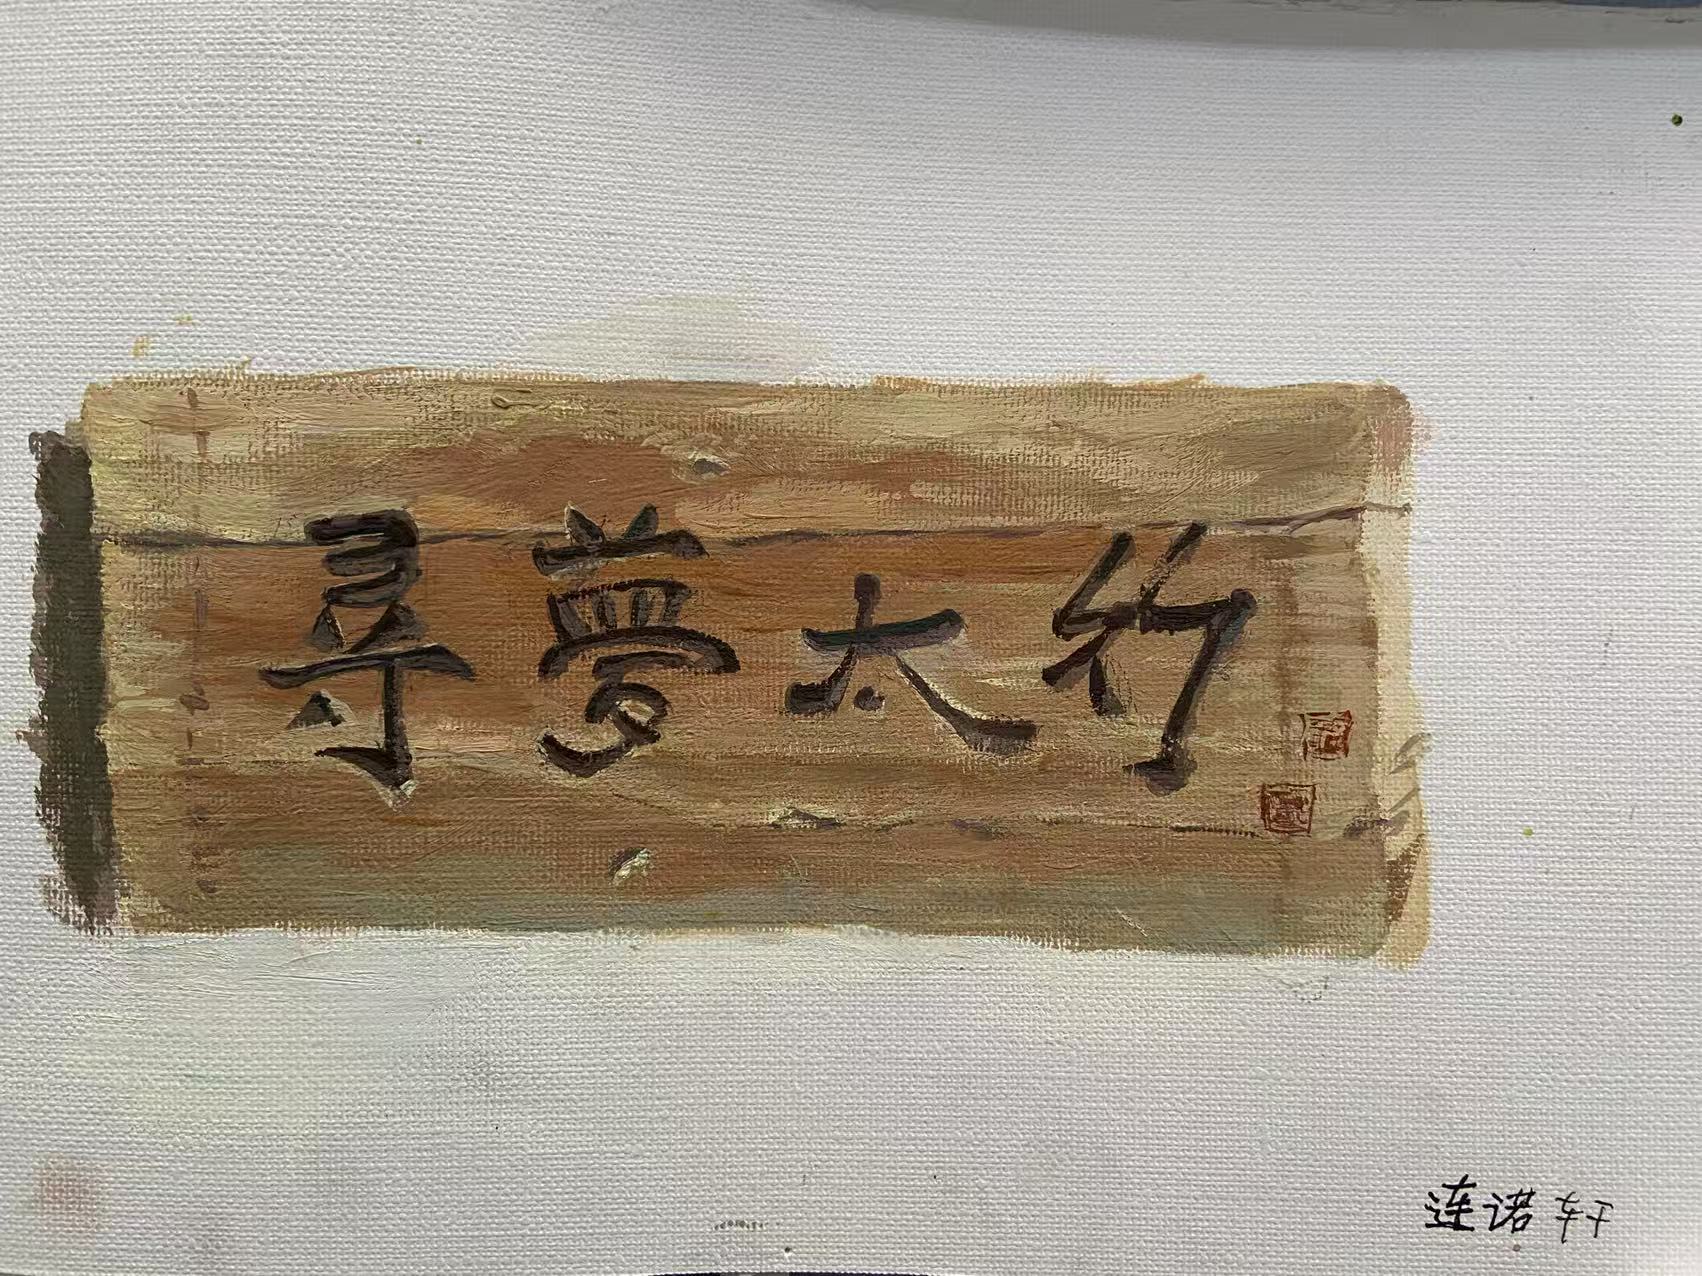 尋夢太行
连诺轩